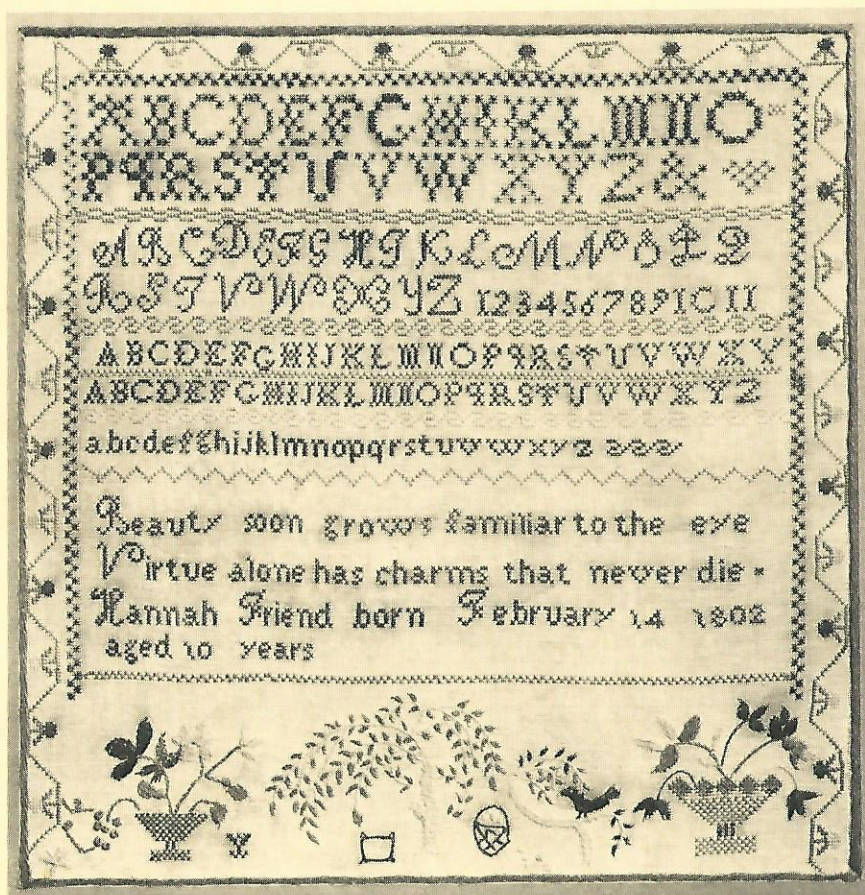 ABCDEFGHIKLMNO
PQRSTUVWXYZ&
ABCDEFGHIKLMNOPQ
RSTVWXYZ 1234567891011
ABCDEFGHIJKLMNOPQRSTUVWXY
ABCDEFGHIJKLMNOPQRSTUVWXYZ
abcdefghijklmnopqrstuvwxyz
Beauty soon grows familiar to the eye
Virtue alone has charms that never die.
Hannah Friend born February 14 1802
aged 10 years